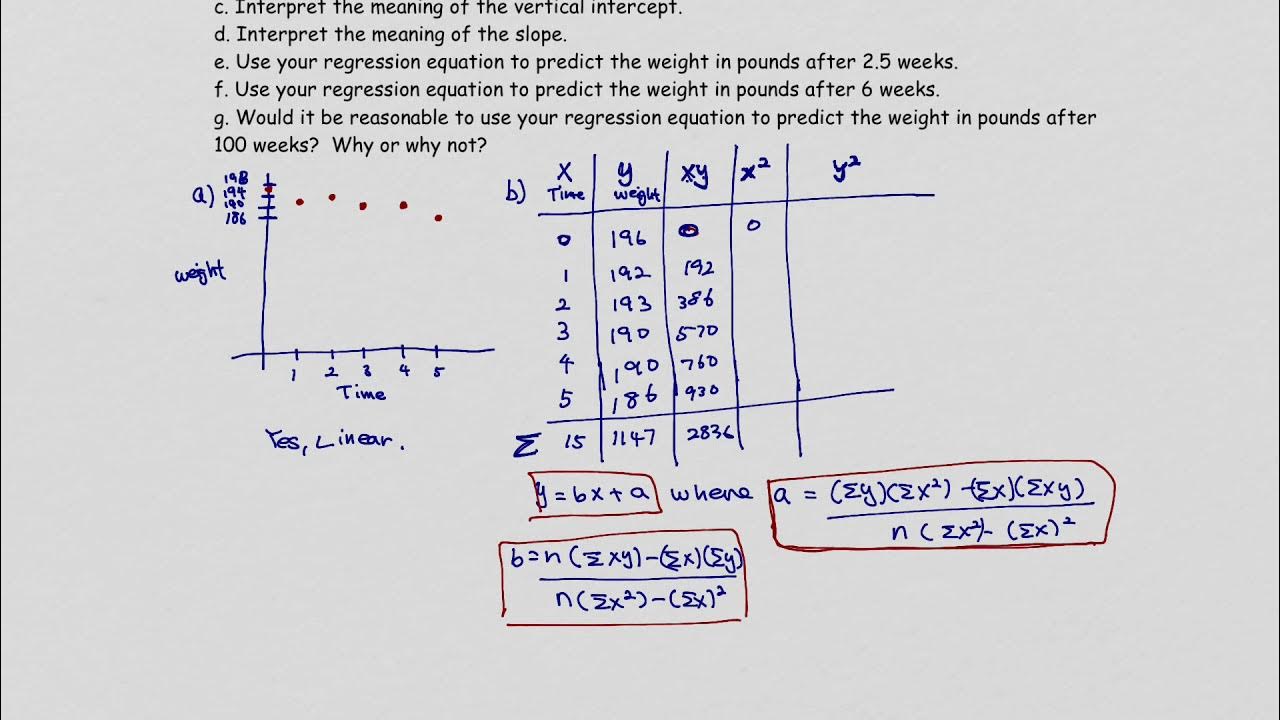 c. Interpret the meaning of the vertical intercept.
d. Interpret the meaning of the slope.
e. Use your regression equation to predict the weight in pounds after 2.5 weeks.
f. Use your regression equation to predict the weight in pounds after 6 weeks.
g. Would it be reasonable to use your regression equation to predict the weight in pounds after
100 weeks?  Why or why not?
a)
198
194
190
186
weight
1 2 3 4 5
Time
Yes, Linear.
b)
x y xy x² y²
Time weight
0 196 0 0
1 192 192
2 193 386
3 190 570
4 190 760
5 186 930
Σ 15 1147 2836
y = bx + a where a = (Σy)(Σx²) - (Σx)(Σxy)
n(Σx²) - (Σx)²
b = n(Σxy) - (Σx)(Σy)
n(Σx²) - (Σx)²